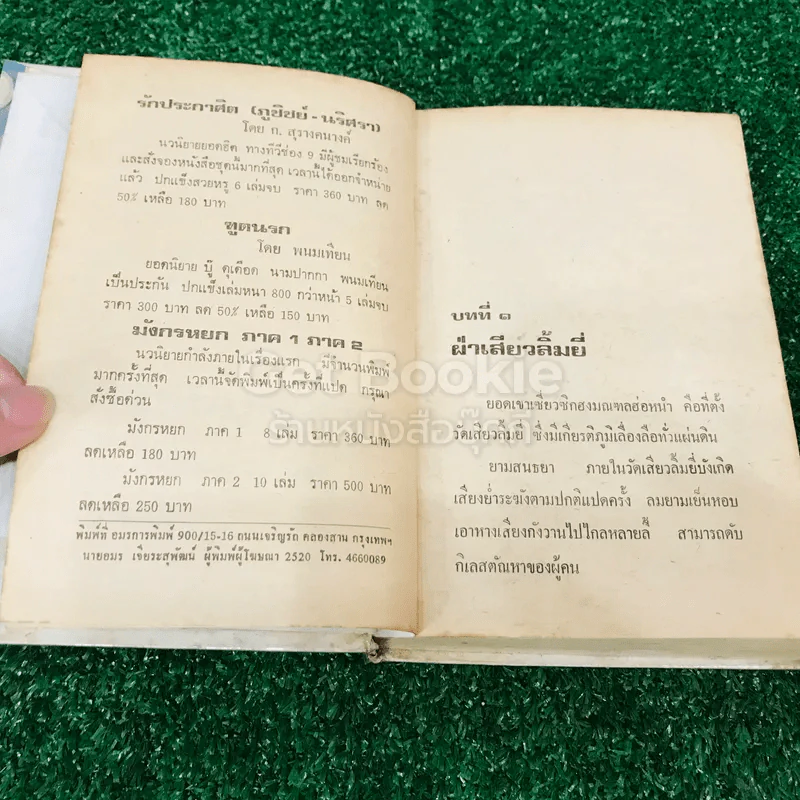 รักประกาศิต (ภูชิชย์ - นริศรา)
โดย ก. สุรางคนางค์
นวนิยายยอดฮิต ทางทีวีช่อง 9 มีผู้ชมเรียกร้อง
และสั่งจองหนังสือชุดนี้มากที่สุด เวลานี้ได้ออกจำหน่าย
แล้ว ปกแข็งสวยหรู 6 เล่มจบ ราคา 360 บาท ลด
50% เหลือ 180 บาท
ทูตนรก
โดย พนมเทียน
ยอดนิยาย บู๊ ดุเดือด นามปากกา พนมเทียน
เป็นประกัน ปกแข็งเล่มหนา 800 กว่าหน้า 5 เล่มจบ
ราคา 300 บาท ลด 50% เหลือ 150 บาท
มังกรหยก ภาค 1 ภาค 2
นวนิยายกำลังภายในเรื่องแรก มีจำนวนพิมพ์
มากครั้งที่สุด เวลานี้จัดพิมพ์เป็นครั้งที่แปด กรุณา
สั่งซื้อด่วน
มังกรหยก ภาค 1 8 เล่ม ราคา 360 บาท
ลดเหลือ 180 บาท
มังกรหยก ภาค 2 10 เล่ม ราคา 500 บาท
ลดเหลือ 250 บาท
พิมพ์ที่ อมรการพิมพ์ 900/15-16 ถนนเจริญรัถ คลองสาน กรุงเทพฯ
นายอมร เจียระสุพัฒน์ ผู้พิมพ์ผู้โฆษณา 2520 โทร. 4660089
บทที่ ๑
ฝ่าเสียวลิ้มยี่
ยอดเขาเซี่ยวซิกฮงมณฑลฮ่อหนำ คือที่ตั้ง
วัดเสียวลิ้มยี่ ซึ่งมีเกียรติภูมิเลื่องลือทั่วแผ่นดิน
ยามสนธยา ภายในวัดเสียวลิ้มยี่บังเกิด
เสียงย่ำระฆังตามปกติแปดครั้ง ลมยามเย็นหอบ
เอาหางเสียงกังวานไปไกลหลายลี้ สามารถดับ
กิเลสตัณหาของผู้คน
Bookie
ร้านหนังสือ